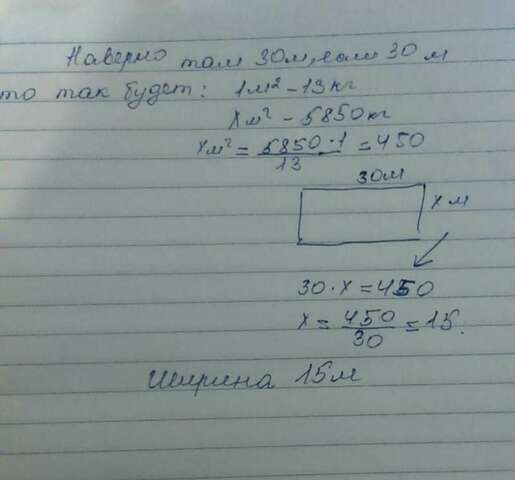 Наверно там 30м, если 30м
то так будет: 1м² - 13кг
Xм² - 5850кг
Xм² = 5850·1/13 = 450
30м
X м
30·X = 450
X = 450/30 = 15.
Ширина 15м